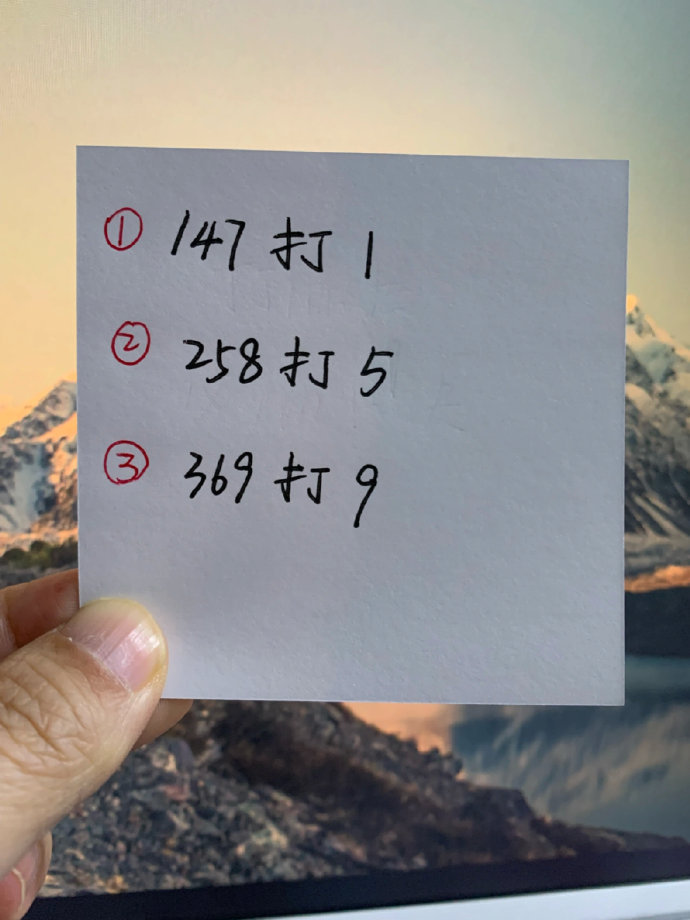 ① 147 打 1
② 258 打 5
③ 369 打 9